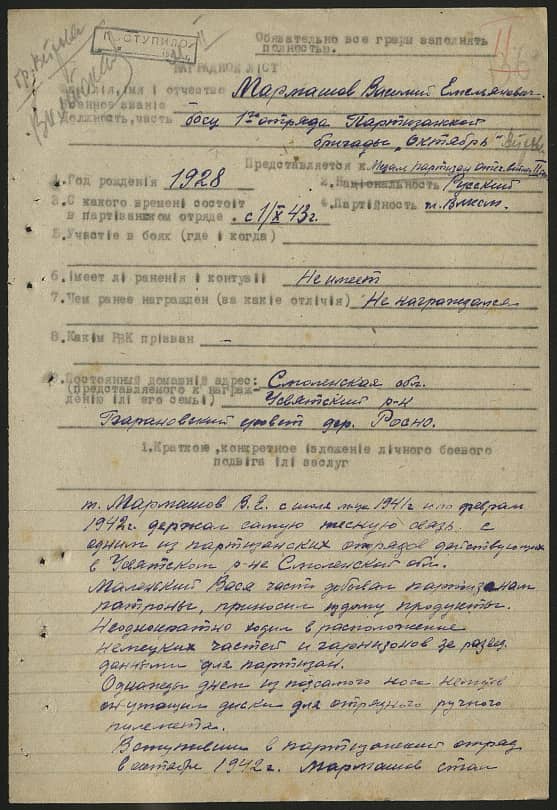 Обязательно все графы заполнять
полностью.
ПОСТУПИЛО
НАГРАДНОЙ ЛІСТ
імя і отчество Мармашов Василий Емельянович
Военное звание
Должность, часть боец 1го отряда Партизанской
бригады „Октябрь"
Представляется к Медали партизан отеч. войны II ст.
1. Год рождения 1928
2. Национальность Русский
3. С какого времени состоіт
в партизанском отряде . с 1/X 43 г.
4. Партійность чл. ВЛКСМ.
5. Участіе в боях (где і когда)
6. Імеет лі ранения і контузіі Не имеет
7. Чем ранее награжден (за какіе отлічія) Не награждался
8. Какім РВК прізван –
9. Постоянный домашній адрес: Смоленская обл.
(представляемого к награж-
денію ілі его семьі) Усвятский р-н
Барановский совет дер. Росно.
1. Краткое, конкретное ізложеніе лічного боевого
подвіга ілі заслуг
т. Мармашов В.Е. с июля м-ца 1941 г. и по февраль
1942 г. держал самую тесную связь с
одним из партизанских отрядов действующих
в Усвятском р-не Смоленской обл.
Маленький Вася часто добывал партизанам
патроны, приносил продукты.
Неоднократно ходил в расположение
немецких частей и гарнизонов за развед.
данными для партизан.
Однажды днем из под самого носа немцев
он утащил диски для отрядного ручного
пулемета.
Вступивши в партизанский отряд
в октябре 1942 г. Мармашов стал